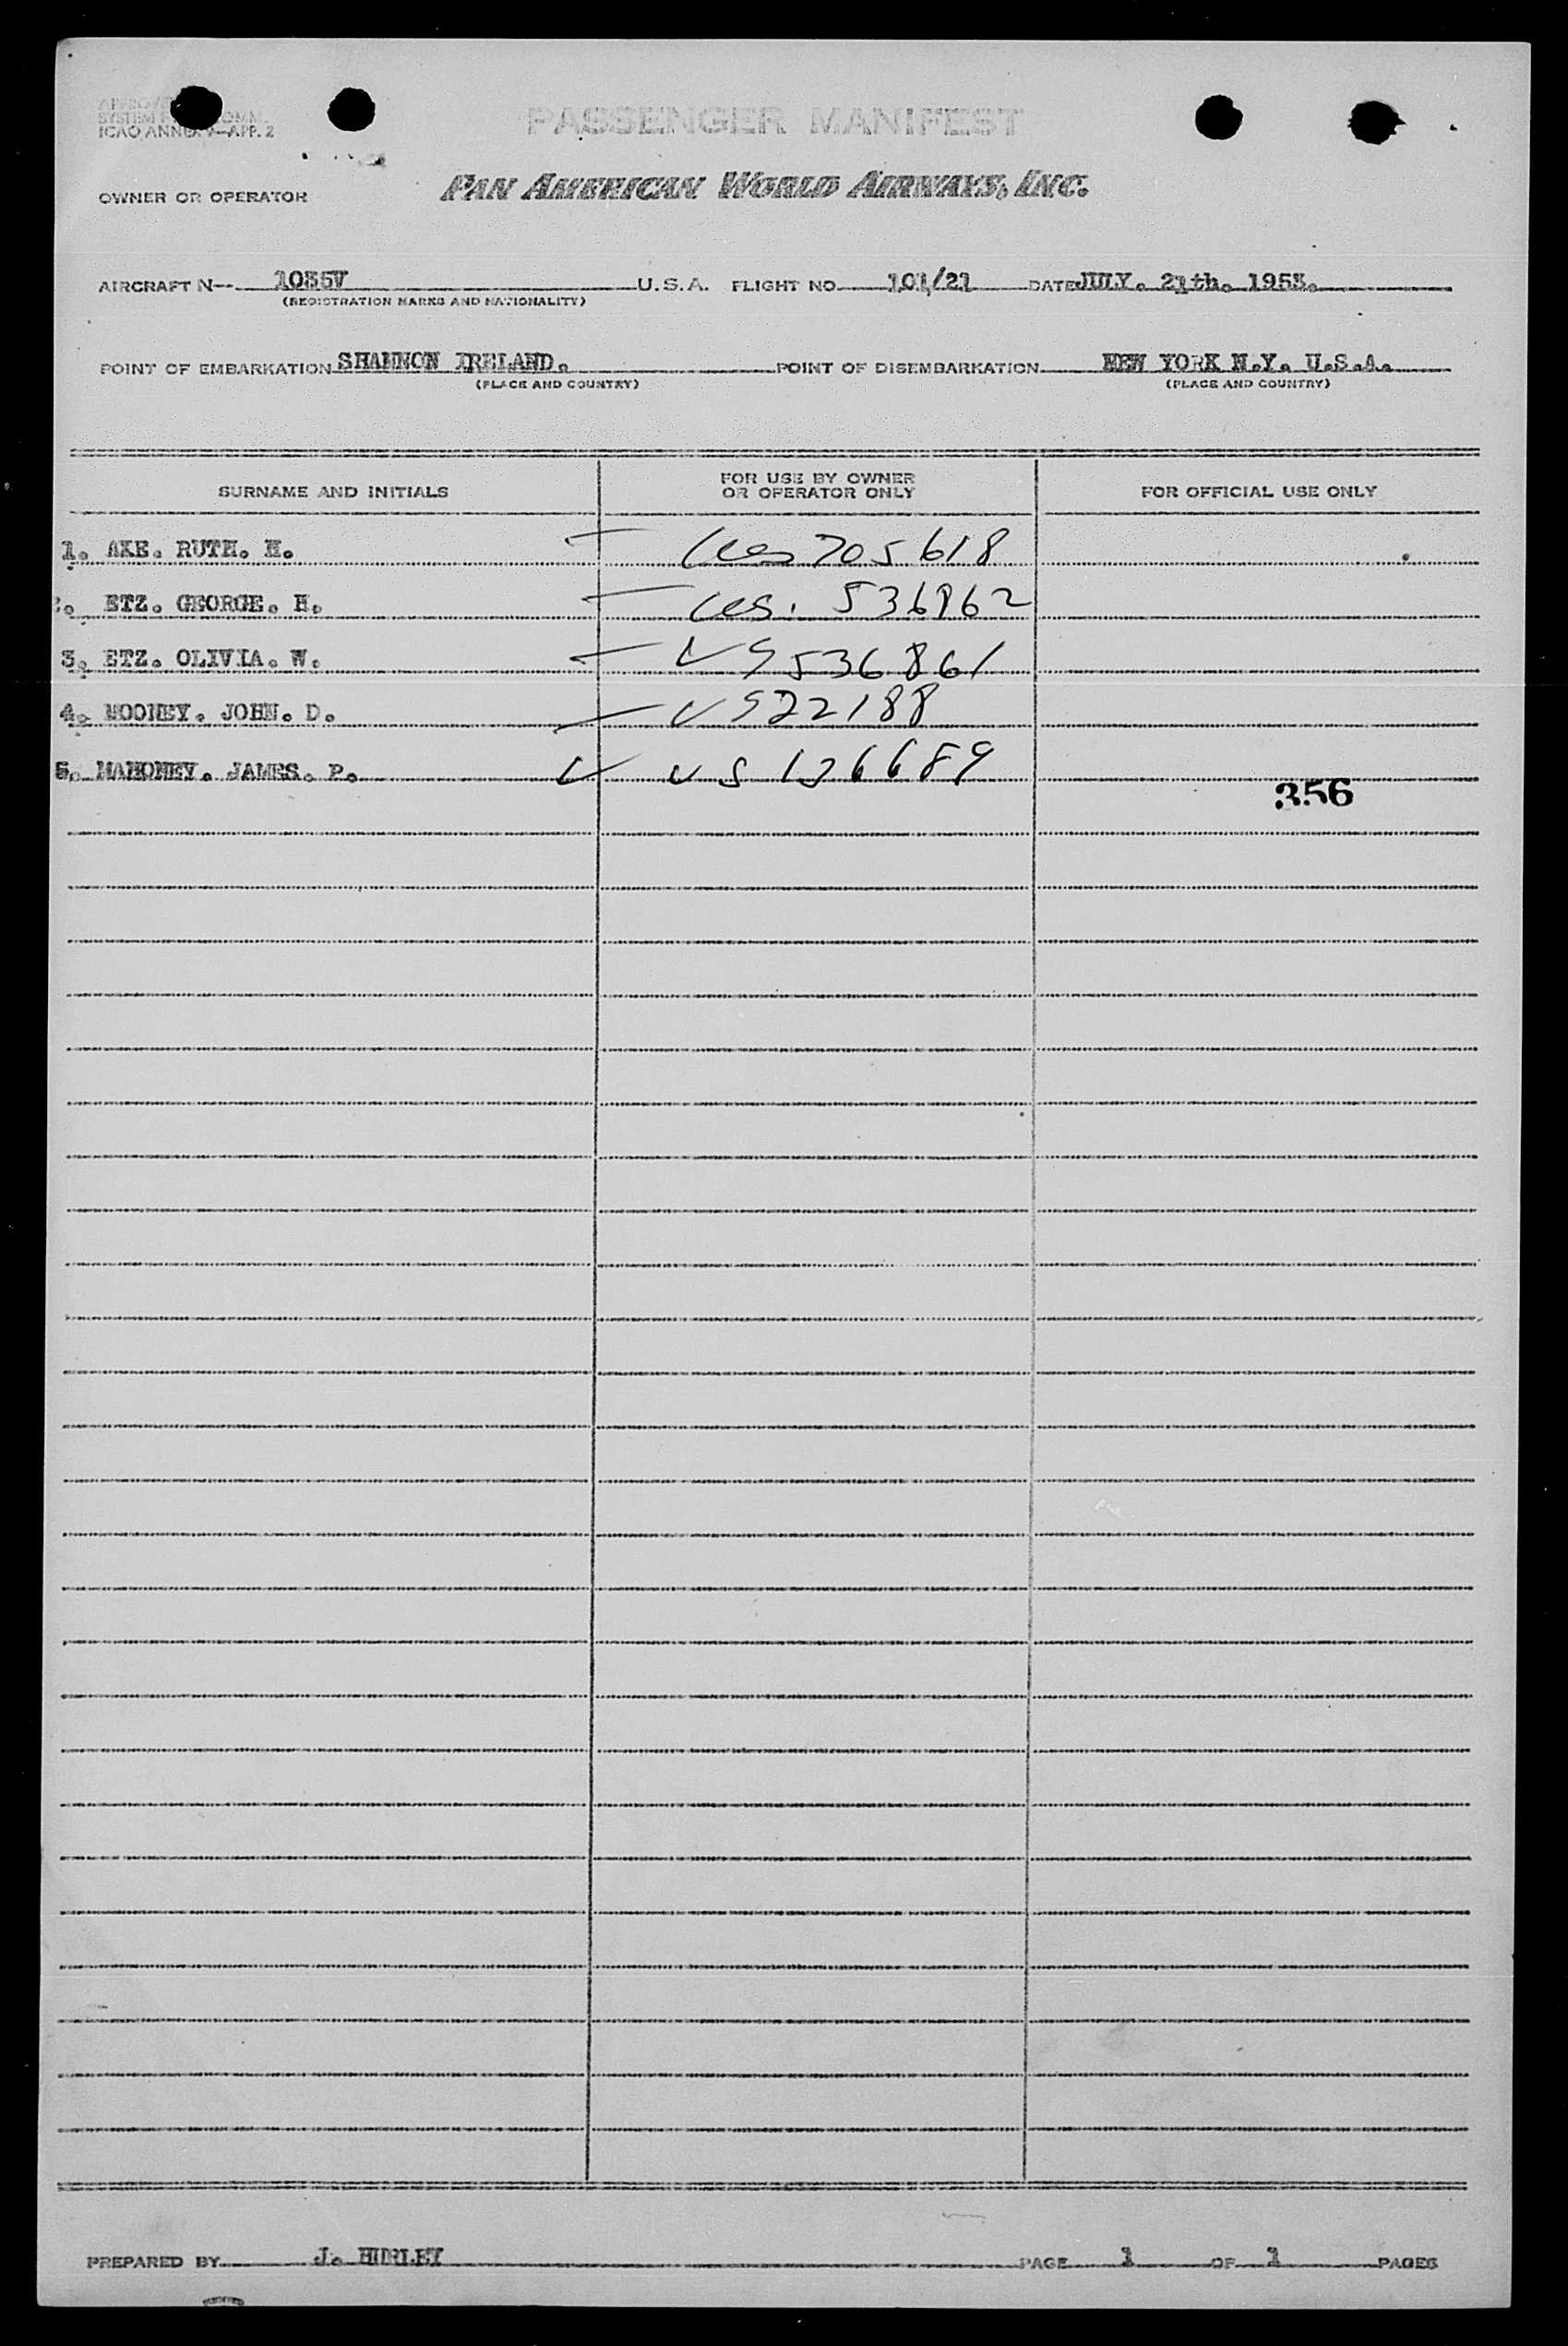 ICAO ANNEX 9—APP. 2
PASSENGER MANIFEST
OWNER OR OPERATOR PAN AMERICAN WORLD AIRWAYS, INC.
AIRCRAFT N-- 1035V U.S.A. FLIGHT NO 101/21 DATE JULY. 21th. 1953.
(REGISTRATION MARKS AND NATIONALITY)
POINT OF EMBARKATION SHANNON IRELAND. POINT OF DISEMBARKATION NEW YORK N.Y. U.S.A.
(PLACE AND COUNTRY) (PLACE AND COUNTRY)
SURNAME AND INITIALS FOR USE BY OWNER OR OPERATOR ONLY FOR OFFICIAL USE ONLY
1. AXE. RUTH. H. US 705618
2. ETZ. GEORGE. H. US. 536862
3. ETZ. OLIVIA. W. US 536861
4. MOONEY. JOHN. D. US 22188
5. MAHONEY. JAMES. P. US 126689
356
PREPARED BY J. HURLEY PAGE 1 OF 1 PAGES